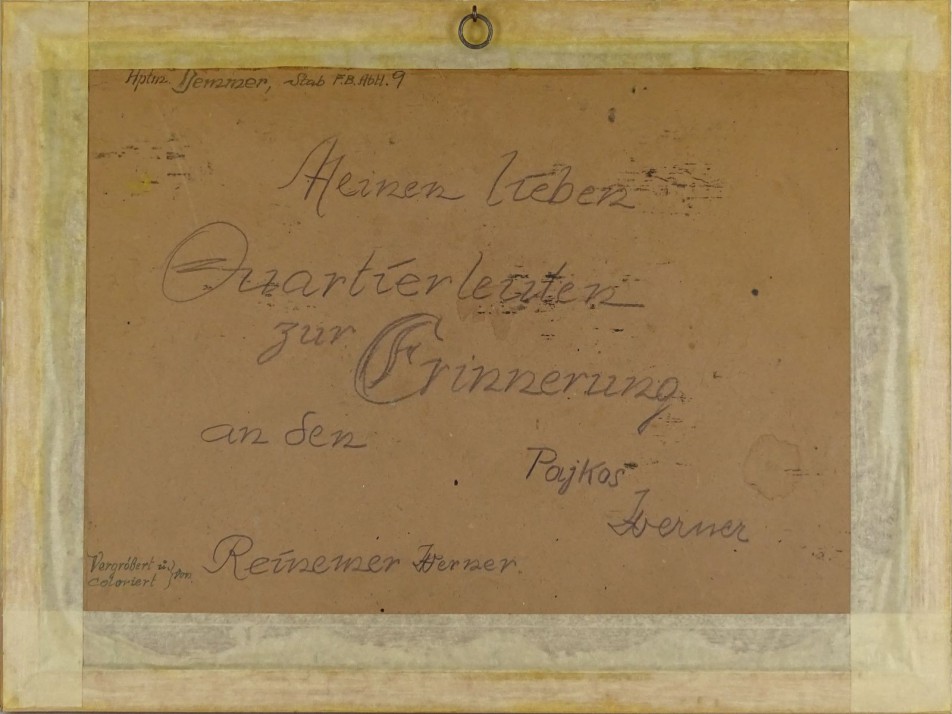 Hptm Demmer, Stab F.B.Abtl. 9
Meinen lieben
Quartierleuten
zur Erinnerung
an den
Pajkos
Werner
Vergrößert u.
coloriert von
Reinemer Werner.